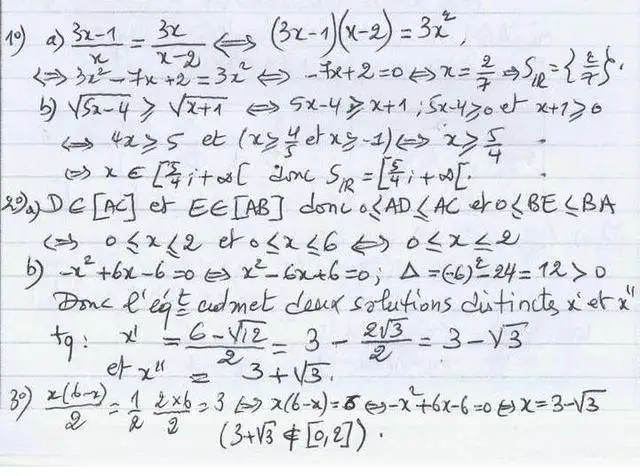 1°) a) (3x-1)/x = 3x/(x-2) ⟺ (3x-1)(x-2) = 3x².
⟺ 3x² - 7x + 2 = 3x² ⟺ -7x + 2 = 0 ⟺ x = 2/7 ⇒ S_IR = {2/7}.
b) √(5x-4) ≥ √(x+1) ⟺ 5x-4 ≥ x+1 ; 5x-4 ≥ 0 et x+1 ≥ 0
⟺ 4x ≥ 5 et (x ≥ 4/5 et x ≥ -1) ⟺ x ≥ 5/4.
⟺ x ∈ [5/4 ; +∞[ donc S_IR = [5/4 ; +∞[.
2°) a) D ∈ [AC] et E ∈ [AB] donc 0 ≤ AD ≤ AC et 0 ≤ BE ≤ BA
⟺ 0 ≤ x ≤ 2 et 0 ≤ x ≤ 6 ⟺ 0 ≤ x ≤ 2
b) -x² + 6x - 6 = 0 ⟺ x² - 6x + 6 = 0 ; Δ = (-6)² - 24 = 12 > 0
Donc l'éqt admet deux solutions distincts x' et x''
tq : x' = (6 - √12)/2 = 3 - 2√3/2 = 3 - √3
et x'' = 3 + √3.
3°) x(6-x)/2 = 1/2 2×6/2 = 3 ⟺ x(6-x) = 6 ⟺ -x² + 6x - 6 = 0 ⟺ x = 3 - √3
(3 + √3 ∉ [0,2]).